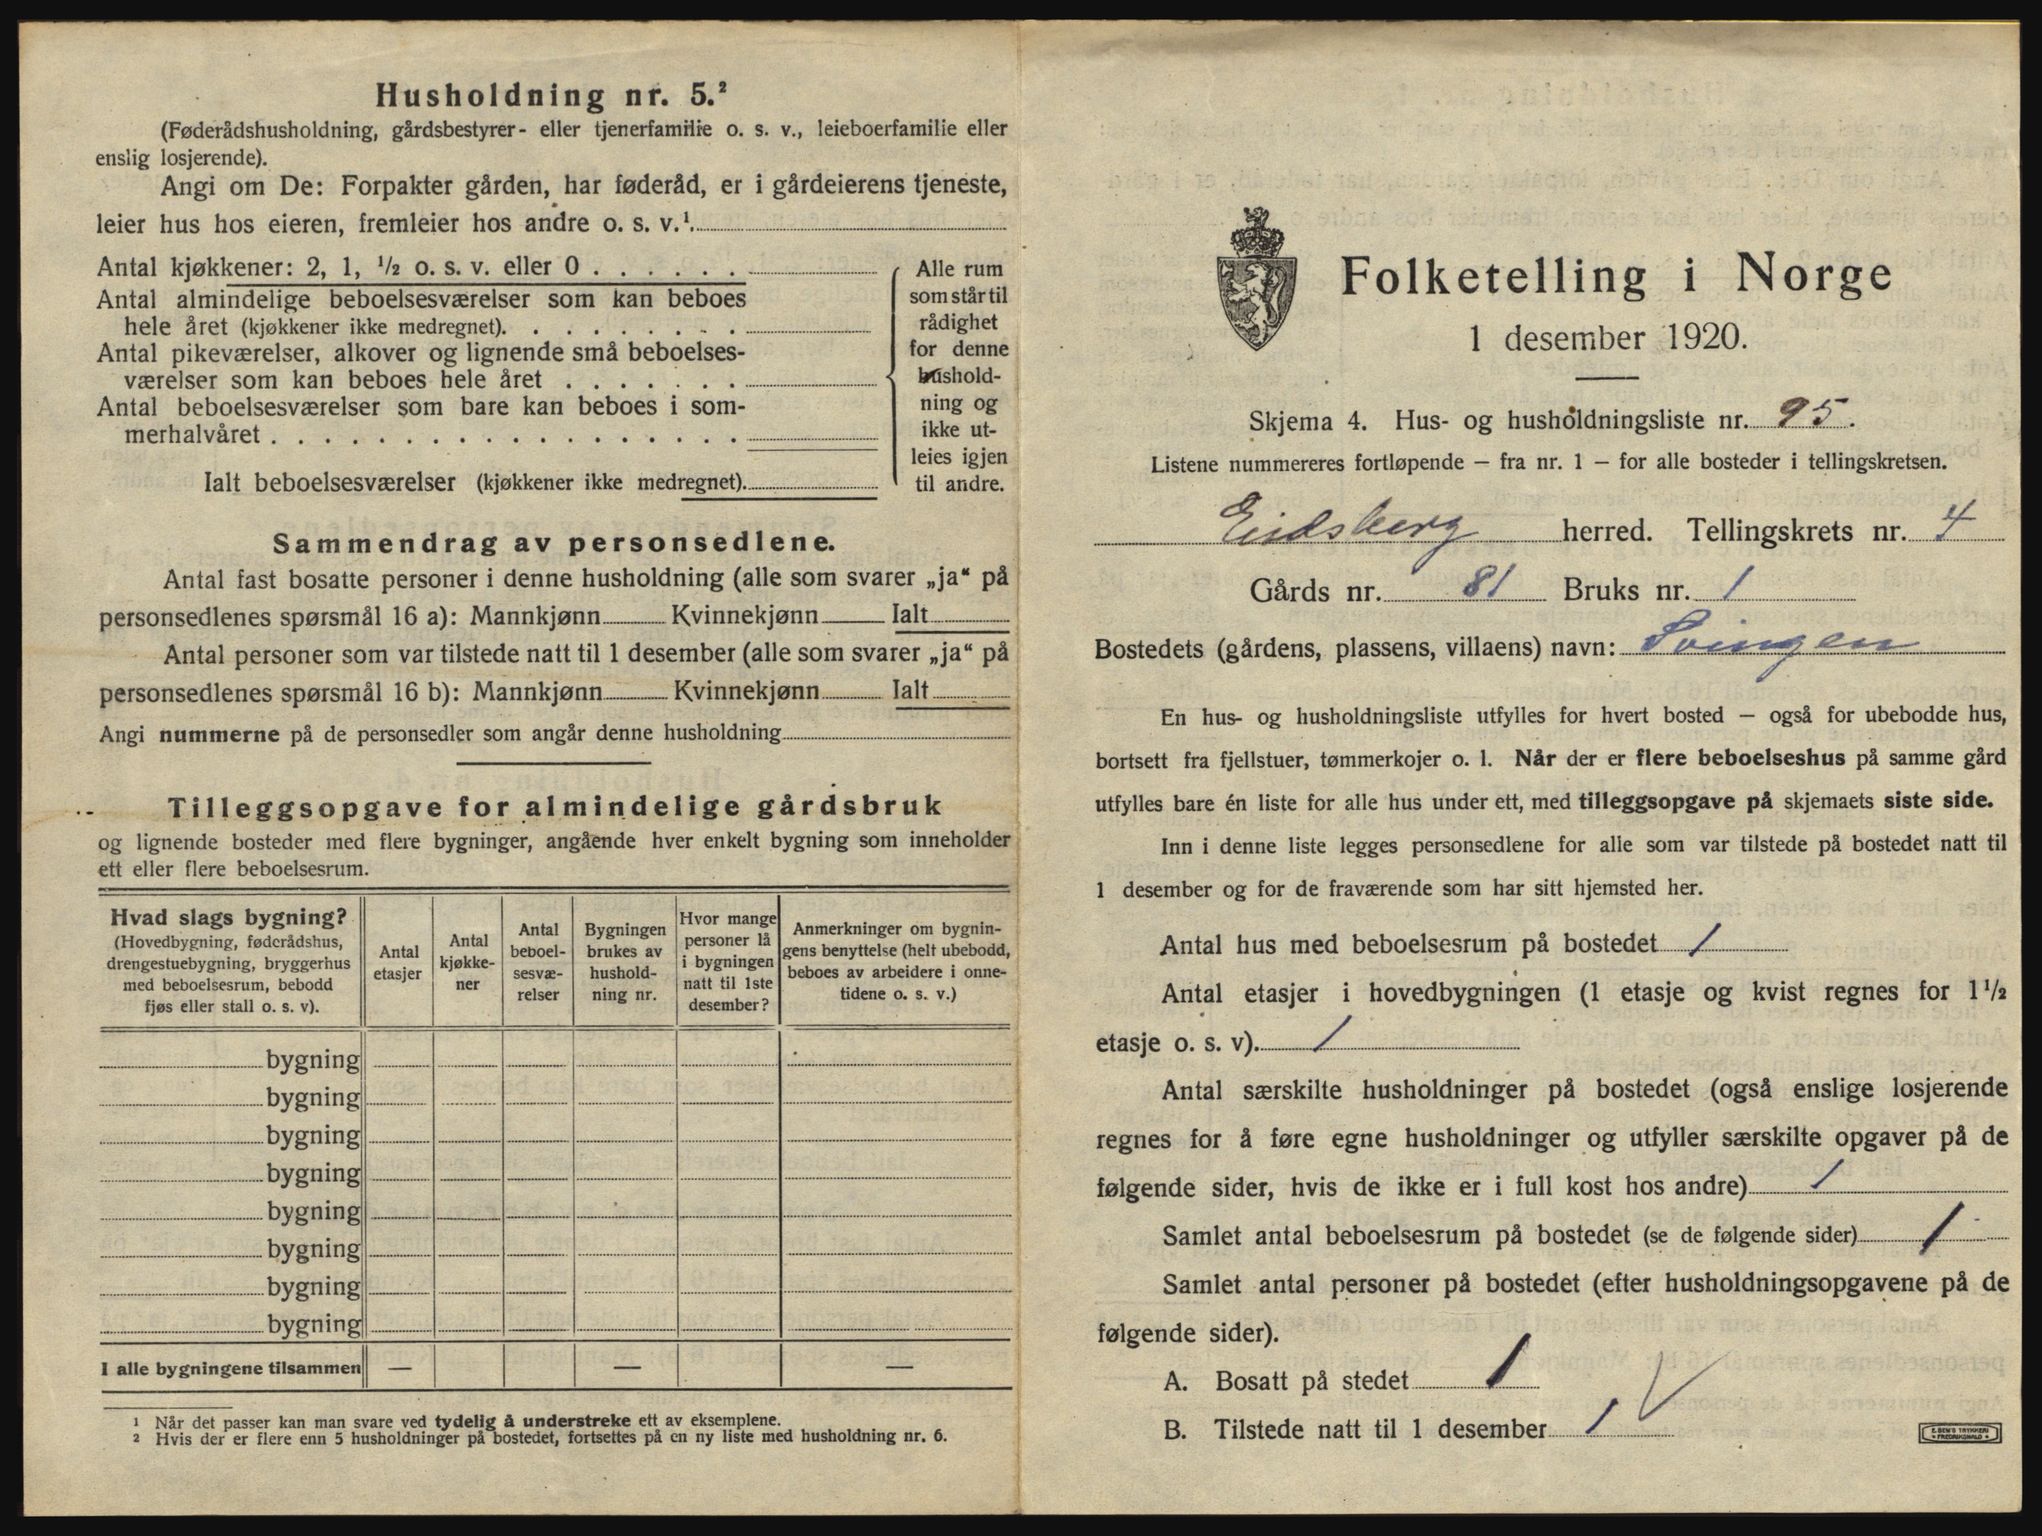 Husholdning nr. 5.²
(Føderådshusholdning, gårdsbestyrer- eller tjenerfamilie o. s. v., leieboerfamilie eller
enslig losjerende).
Angi om De: Forpakter gården, har føderåd, er i gårdeierens tjeneste,
leier hus hos eieren, fremleier hos andre o. s. v.¹
Antal kjøkkener: 2, 1, ½ o. s. v. eller 0 . . . . . .
Antal almindelige beboelsesværelser som kan beboes
hele året (kjøkkener ikke medregnet). . . . . . . . .
Antal pikeværelser, alkover og lignende små beboelses-
værelser som kan beboes hele året . . . . . . .
Antal beboelsesværelser som bare kan beboes i som-
merhalvåret . . . . . . . . . . . . . . . . . .
Ialt beboelsesværelser (kjøkkener ikke medregnet).
Alle rum
som står til
rådighet
for denne
hushold-
ning og
ikke ut-
leies igjen
til andre.
Sammendrag av personsedlene.
Antal fast bosatte personer i denne husholdning (alle som svarer „ja“ på
personsedlenes spørsmål 16 a): Mannkjønn Kvinnekjønn Ialt
Antal personer som var tilstede natt til 1 desember (alle som svarer „ja“ på
personsedlenes spørsmål 16 b): Mannkjønn Kvinnekjønn Ialt
Angi nummerne på de personsedler som angår denne husholdning
Tilleggsopgave for almindelige gårdsbruk
og lignende bosteder med flere bygninger, angående hver enkelt bygning som inneholder
ett eller flere beboelsesrum.
Hvad slags bygning?
(Hovedbygning, føderådshus,
drengestuebygning, bryggerhus
med beboelsesrum, bebodd
fjøs eller stall o. s. v).
Antal
etasjer
Antal
kjøkke-
ner
Antal
beboel-
sesvæ-
relser
Bygningen
brukes av
hushold-
ning nr.
Hvor mange
personer lå
i bygningen
natt til 1ste
desember?
Anmerkninger om bygnin-
gens benyttelse (helt ubebodd,
beboes av arbeidere i onne-
tidene o. s. v.)
bygning
bygning
bygning
bygning
bygning
bygning
bygning
bygning
I alle bygningene tilsammen — — —
¹ Når det passer kan man svare ved tydelig å understreke ett av eksemplene.
² Hvis der er flere enn 5 husholdninger på bostedet, fortsettes på en ny liste med husholdning nr. 6.
Folketelling i Norge
1 desember 1920.
Skjema 4. Hus- og husholdningsliste nr. 95.
Listene nummereres fortløpende — fra nr. 1 — for alle bosteder i tellingskretsen.
Eidsberg herred. Tellingskrets nr. 4
Gårds nr. 81 Bruks nr. 1
Bostedets (gårdens, plassens, villaens) navn: Svingen
En hus- og husholdningsliste utfylles for hvert bosted — også for ubebodde hus,
bortsett fra fjellstuer, tømmerkojer o. l. Når der er flere beboelseshus på samme gård
utfylles bare én liste for alle hus under ett, med tilleggsopgave på skjemaets siste side.
Inn i denne liste legges personsedlene for alle som var tilstede på bostedet natt til
1 desember og for de fraværende som har sitt hjemsted her.
Antal hus med beboelsesrum på bostedet 1
Antal etasjer i hovedbygningen (1 etasje og kvist regnes for 1½
etasje o. s. v). 1
Antal særskilte husholdninger på bostedet (også enslige losjerende
regnes for å føre egne husholdninger og utfyller særskilte opgaver på de
følgende sider, hvis de ikke er i full kost hos andre) 1
Samlet antal beboelsesrum på bostedet (se de følgende sider) 1
Samlet antal personer på bostedet (efter husholdningsopgavene på de
følgende sider).
A. Bosatt på stedet 1
B. Tilstede natt til 1 desember 1
E. SEM'S TRYKKERI
FREDRIKSHALD